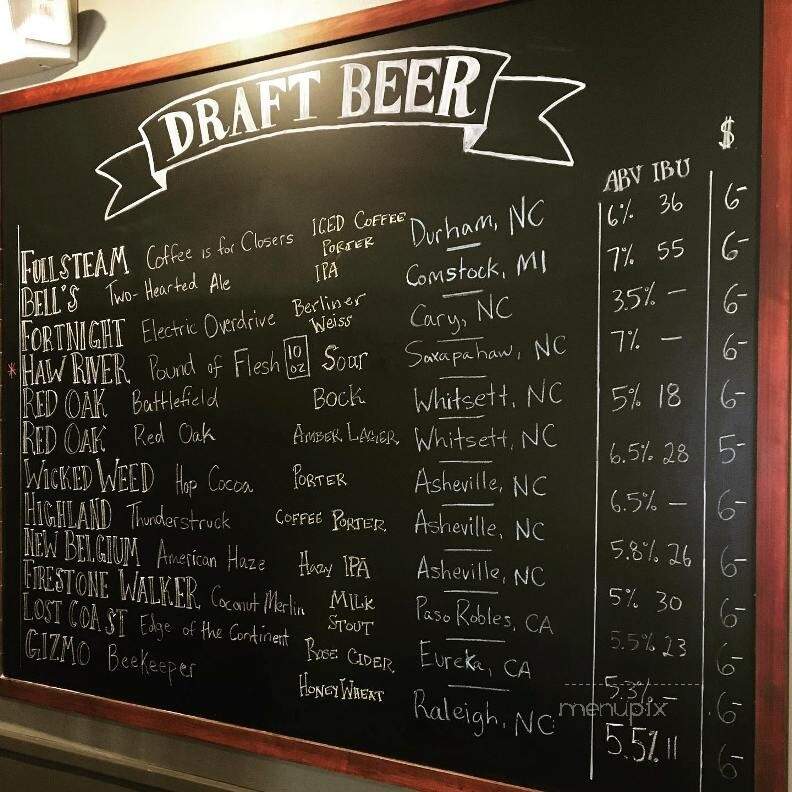 DRAFT BEER
$
ABV IBU
FULLSTEAM Coffee is for Closers ICED COFFEE PORTER Durham, NC 6% 36 6-
BELL'S Two-Hearted Ale IPA Comstock, MI 7% 55 6-
FORTNIGHT Electric Overdrive Berliner Weiss Cary, NC 3.5% - 6-
* HAW RIVER Pound of Flesh 10 oz Sour Saxapahaw, NC 7% - 6-
RED OAK Battlefield BOCK Whitsett, NC 5% 18 6-
RED OAK Red Oak AMBER LAGER Whitsett, NC 6.5% 28 5-
WICKED WEED Hop Cocoa PORTER Asheville, NC 6.5% - 6-
HIGHLAND Thunderstruck COFFEE PORTER Asheville, NC 5.8% 26 6-
NEW BELGIUM American Haze Hazy IPA Asheville, NC 5% 30 6-
FIRESTONE WALKER Coconut Merlin MILK STOUT Paso Robles, CA 5.5% 23 6-
LOST COAST Edge of the Continent ROSE CIDER Eureka, CA 5.3% - 6-
GIZMO BeeKeeper HONEY WHEAT Raleigh, NC 5.5% 11 6-
menupix